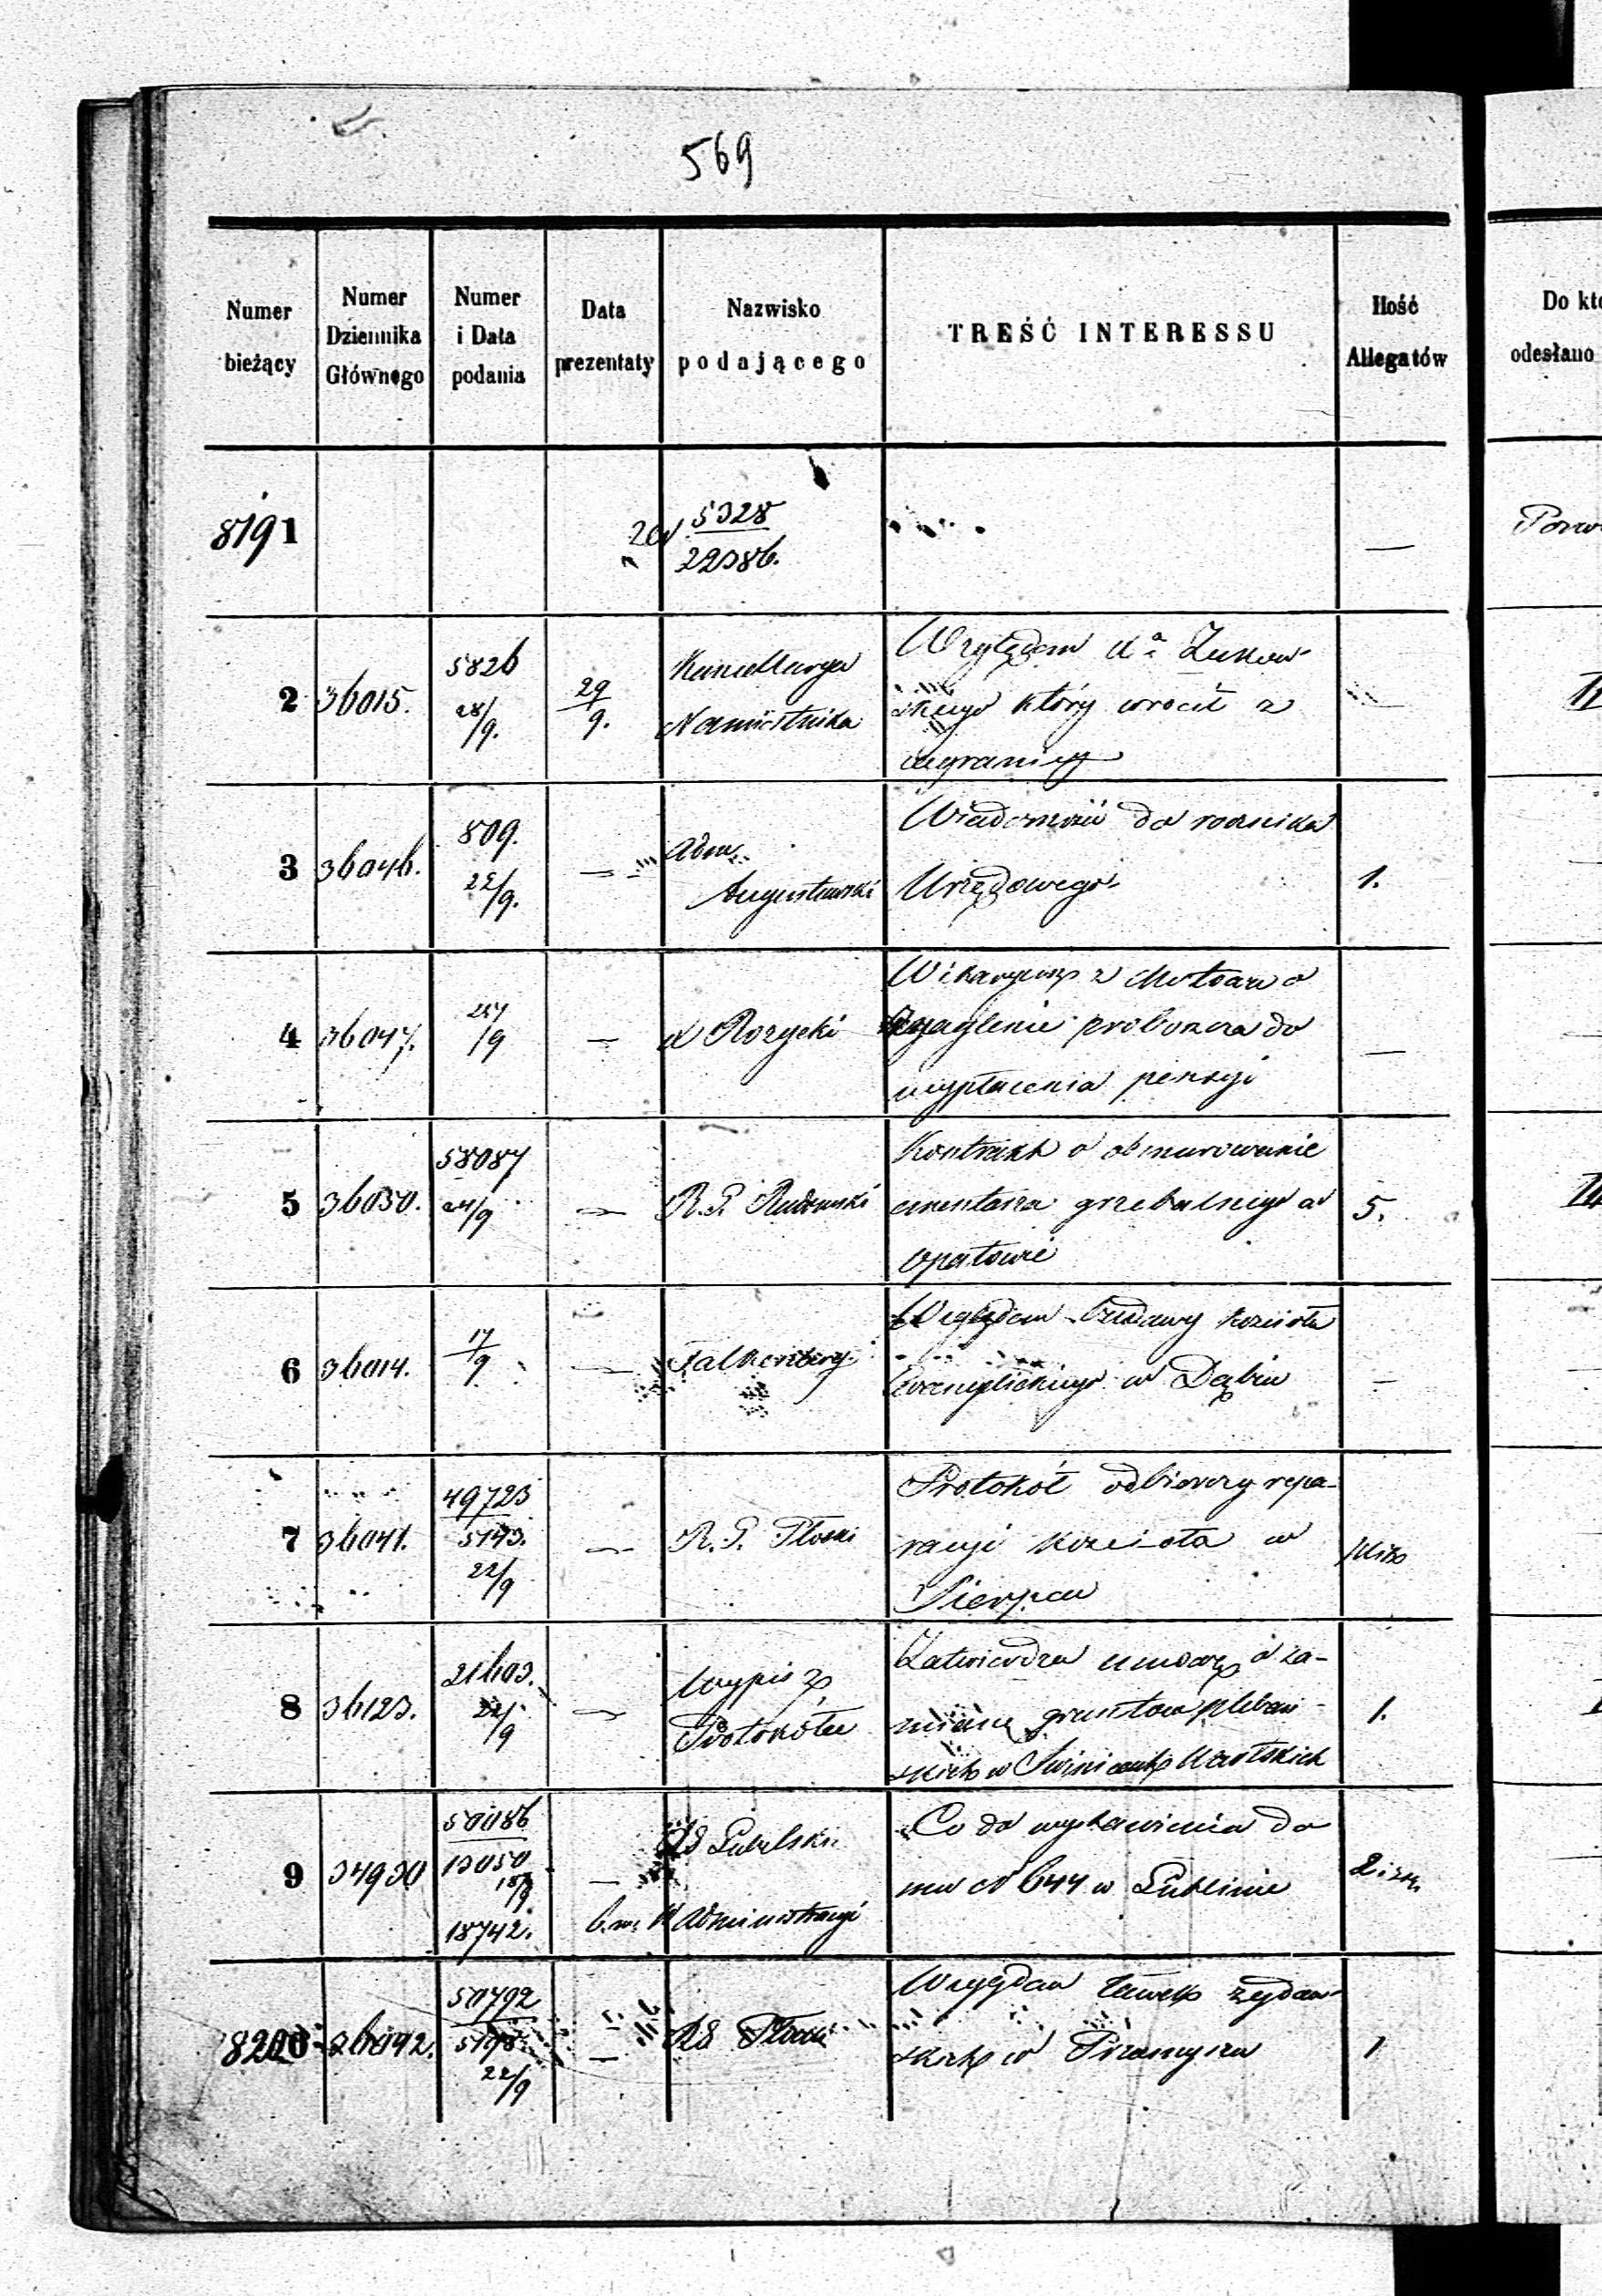 569
Numer bieżący
Numer Dziennika Głównego
Numer i Data podania
Data prezentaty
Nazwisko podającego
TREŚĆ INTERESSU
Ilość Allegatów
Do kto
odesłano
8191
5328
22386.
—
2
36015.
5826
28/9.
29/9.
Kancellarya
Namiestnika
Względem
który wrócił z
zagranicy
3
36046.
809.
22/9.
—
Adm.
Augustowski
Wiadomość do rocznika
Urzędowego
1.
4
36047.
/9
—
X Rozycki
Wikaryusz z o
proboszcza do
wypłacenia pensyi
—
5
36050.
58087
24/9
—
R. G. Radomski
Kontrakt o obmurowanie
cmentarza grzebalnego w
Opatowie
5.
6
36014.
17/9
—
Falkenberg
Względem budowy kościoła
Ewangelickiego w Dąbiu
—
7
36041.
49723
5143.
22/9
—
R. G. Płocki
Protokół odbiorczy repa-
racyi kościoła w
Sierpcu
8
36123.
21603.
22/9
—
Wypis z
Protokółu
Zatwierdza umowę o za-
mianę gruntów plebań-
skich w Świnicach Warckich
1.
9
34930
50086
13050
18/9
18742.
—
Rd Lubelski
W Administracyi
Co do wystawienia do
mu N 644 w Lublinie
8200
36042.
50792
22/9
—
Rd Płocki
Względem ławek żydow-
skich w
1